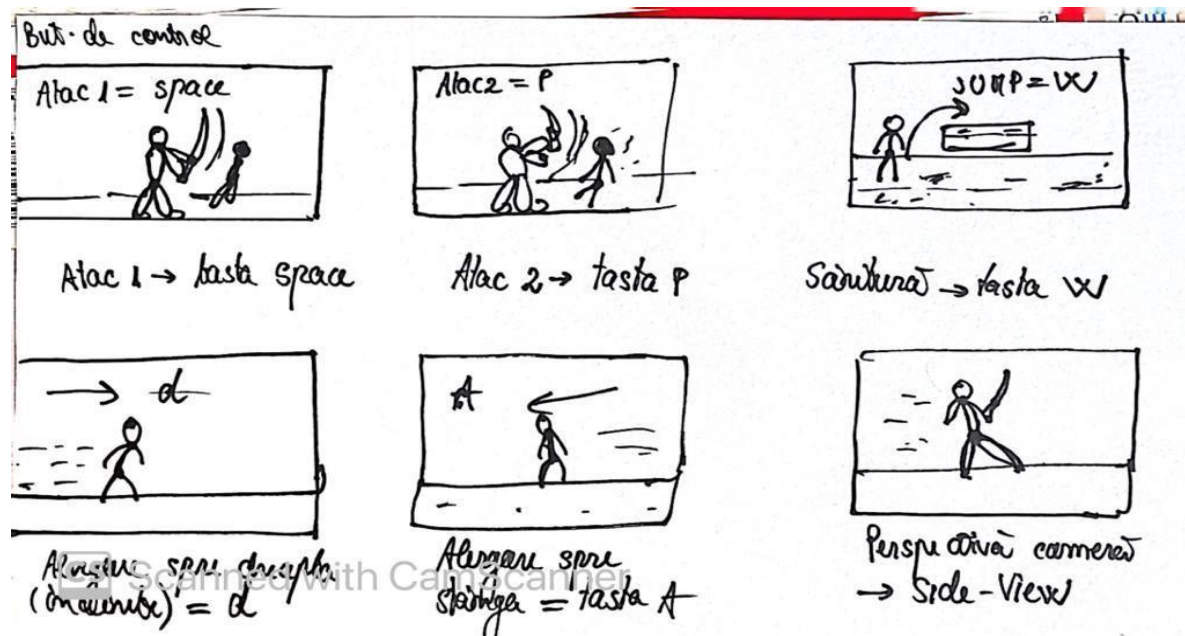 But. de control
Atac 1 = space
Atac2 = P
JUMP = W
Atac 1 → tasta space
Atac 2 → tasta P
Săritură → tasta W
→ d
A
Alergare spre dreapta
= d
Alergare spre
stânga = tasta A
Perspectivă cameră
→ Side-View
CS Scanned with CamScanner